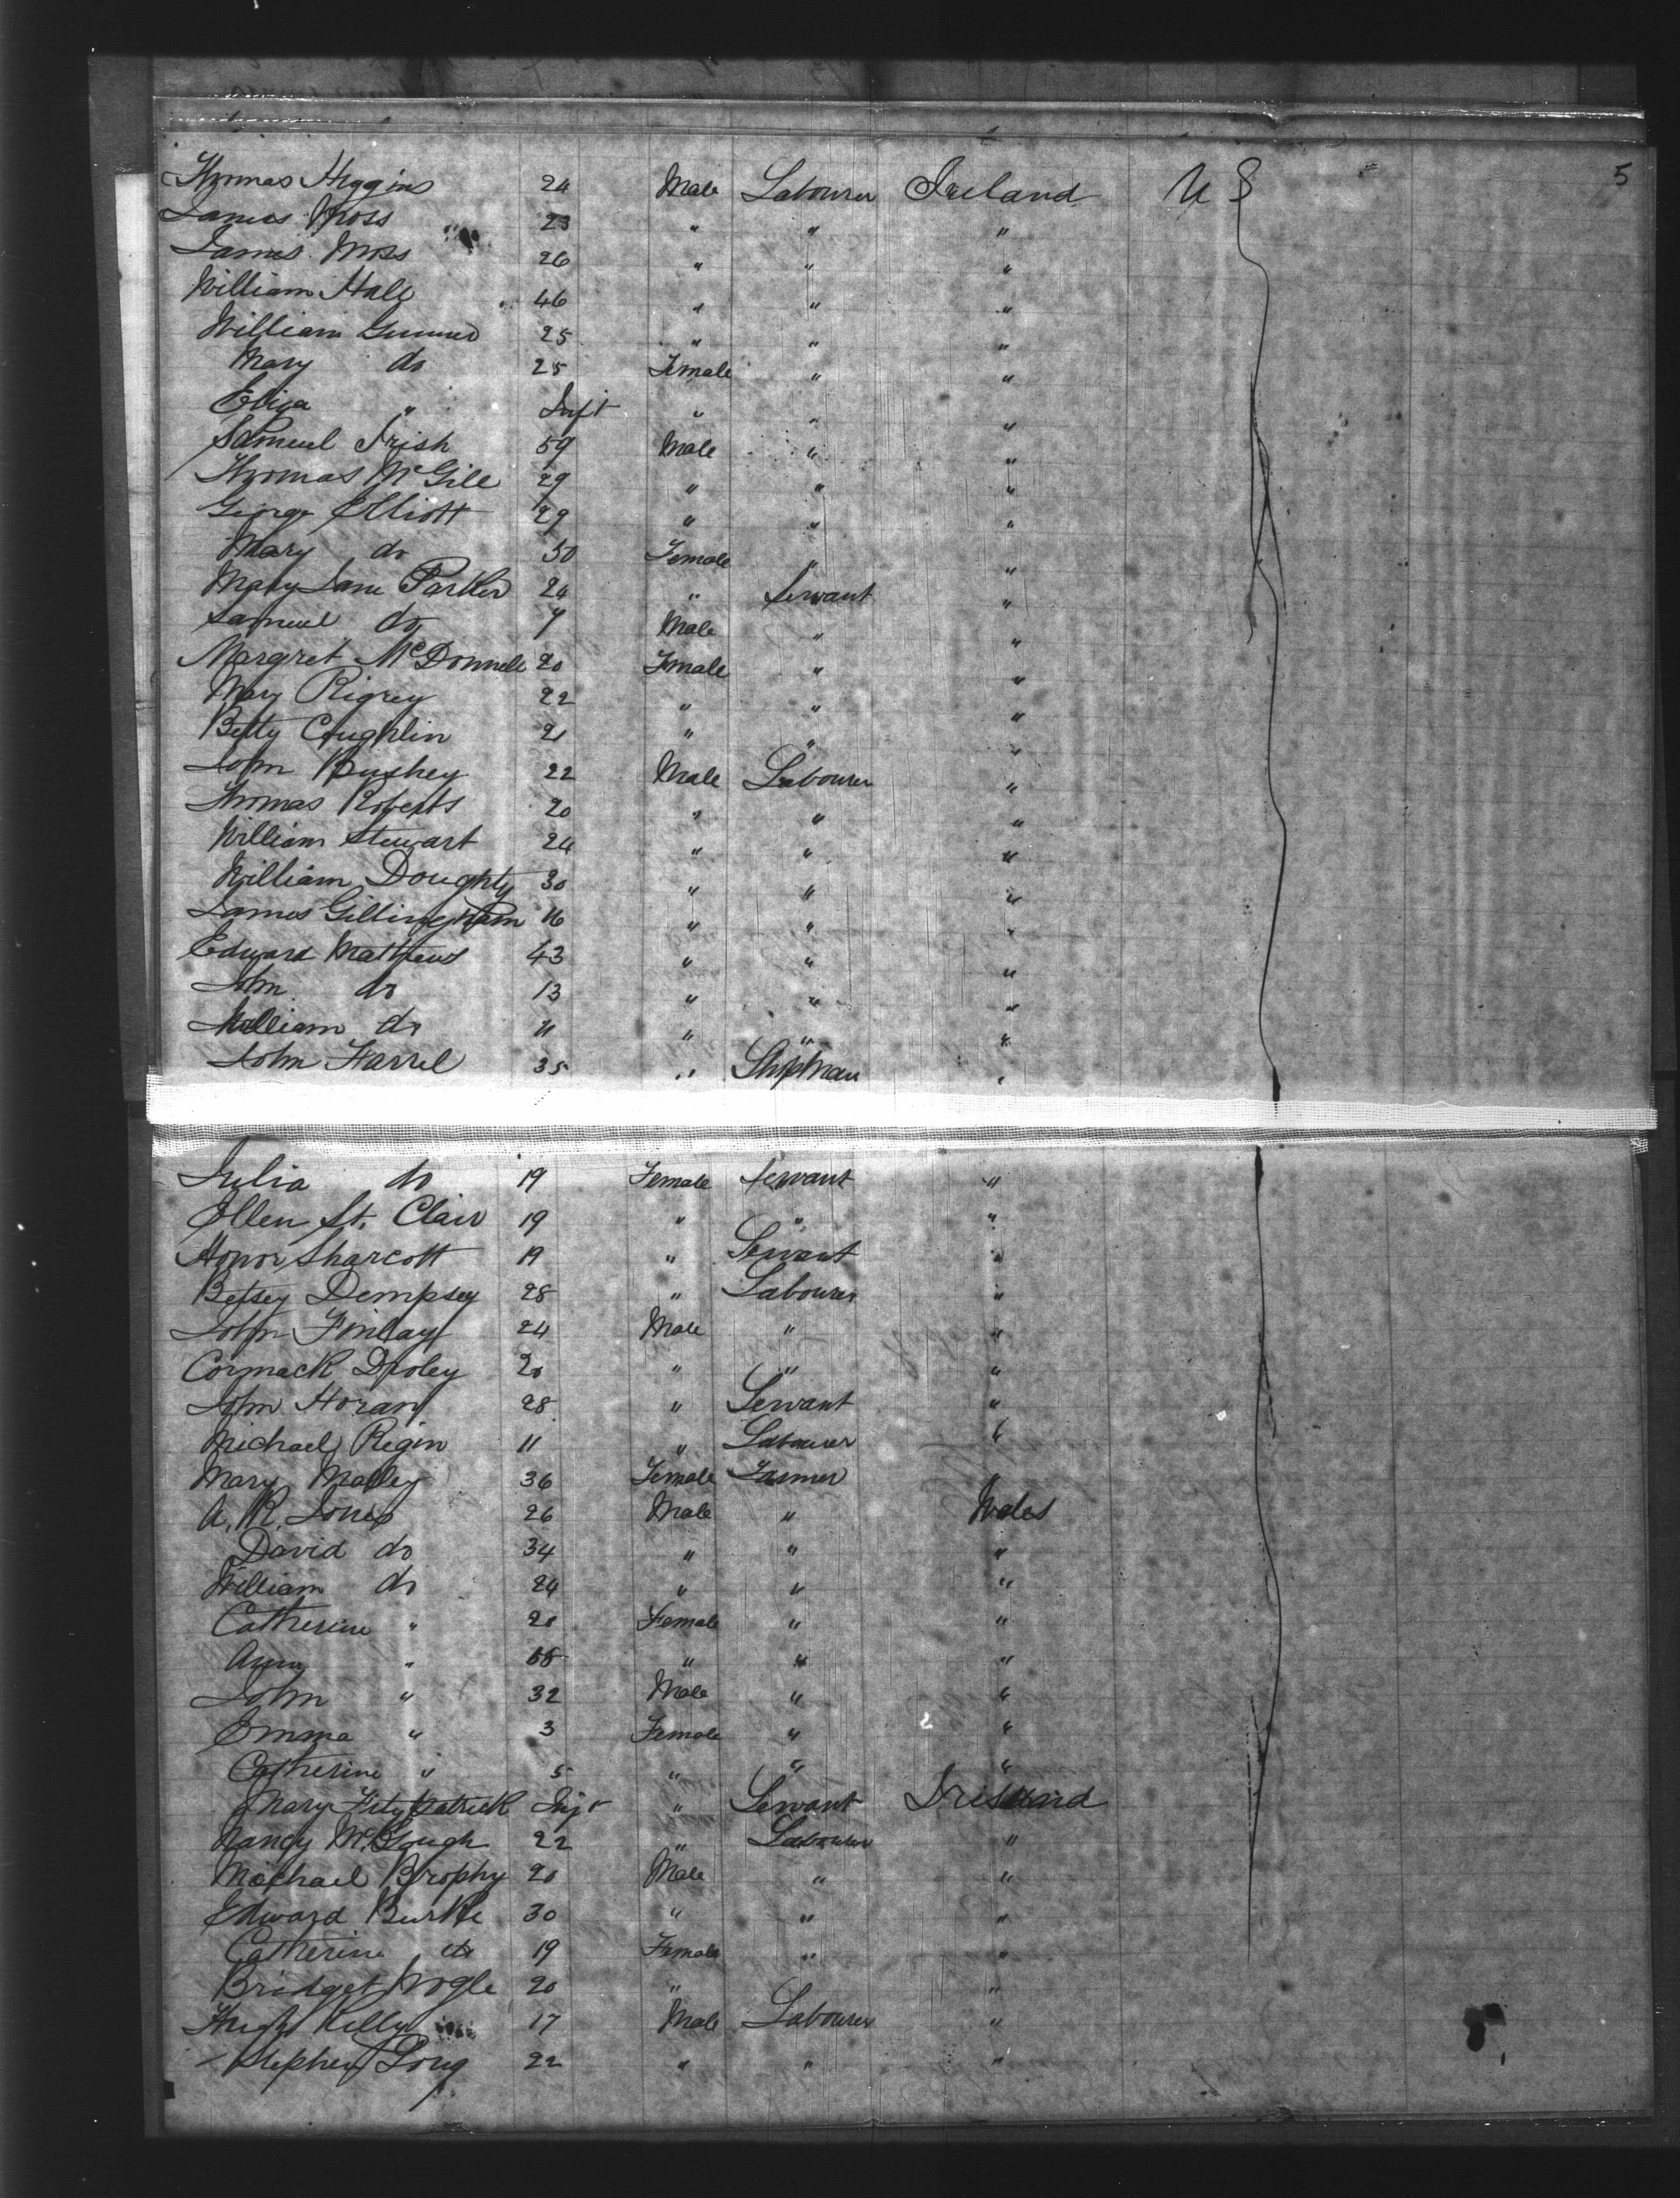 5
Thomas Higgins 24 Male Labourer Ireland U S
James Moss 23 " " "
James Moss 26 " " "
William Hale 46 " " "
William 25 " " "
Mary do 25 Female " "
Eliza " Inft " " "
Samuel Irish 59 Male " "
Thomas McGill 29 " " "
George Elliott 29 " " "
Mary do 50 Female " "
Mary Jane Parker 24 " Servant "
Samuel do 7 Male " "
Margret McDonnell 20 Female " "
Mary Rigrey 22 " " "
Betty Coughlin 21 " " "
John Bushey 22 Male Labourer "
Thomas Roberts 20 " " "
William Stewart 24 " " "
William Doughty 30 " " "
James Gillingham 16 " " "
Edward Matthews 43 " " "
John do 13 " " "
William do 11 " " "
John Farrel 35 " Shipman "
Julia do 19 Female Servant "
Ellen St. Clair 19 " " "
Honor Sharcott 19 " Servant "
Betsey Dempsey 28 " Labourer "
John Finlay 24 Male " "
Cormack 20 " " "
John Horan 28 " Servant "
Michael Regin 11 " Labourer "
Mary Malley 36 Female Farmer "
A. R. Jones 26 Male " Wales
David do 34 " " "
William do 24 " " "
Catherine " 20 Female " "
" " " "
John " 32 Male " "
Emma " 3 Female " "
Catherine " 5 " " "
Mary Fitzpatrick Inft " Servant Ireland
Nancy 22 " Labourer "
Michael Brophy 20 Male " "
Edward Burke 30 " " "
Catherine do 19 Female " "
Bridget 20 " "
Hugh Kelly 17 Male Labourer "
Stephen Long 22 " " "